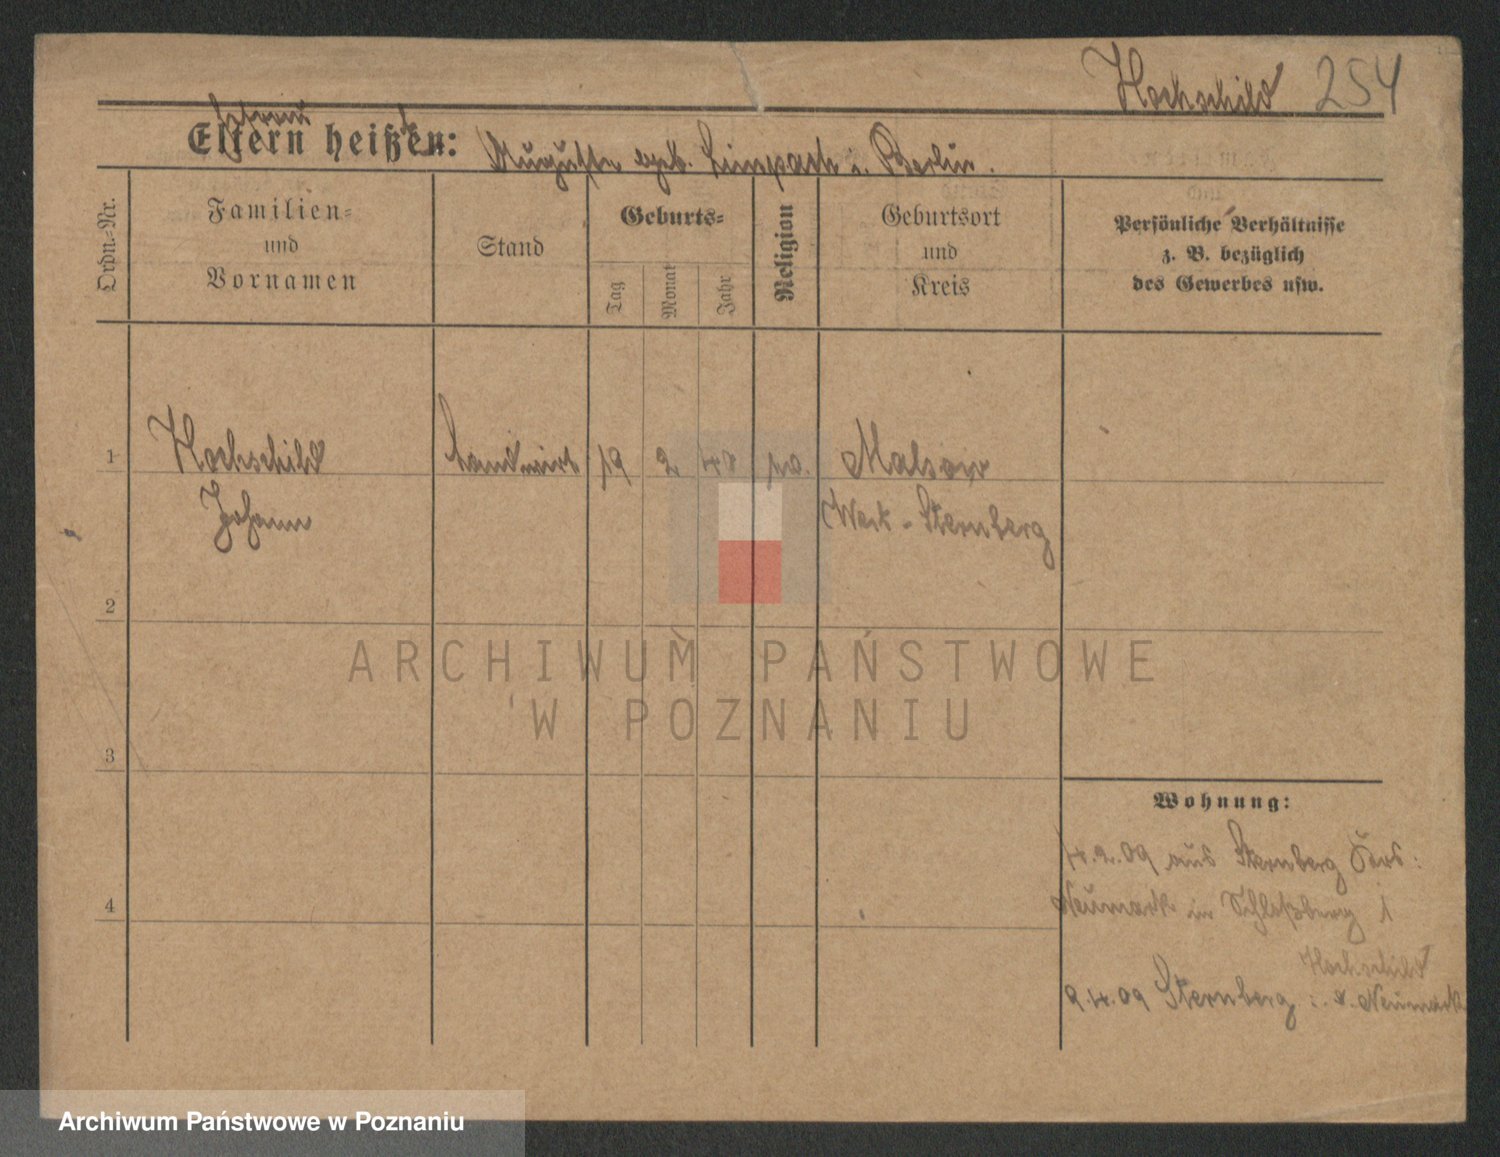 Hochschild 254
Ehefrau
Eltern heißen:
Auguste geb. Limpach i. Berlin.
Ordn.-Nr.
Familien-
und
Vornamen
Stand
Geburts-
Tag
Monat
Jahr
Religion
Geburtsort
und
Kreis
Persönliche Verhältnisse
z. B. bezüglich
des Gewerbes usw.
1
Hochschild
Johann
Landwirt
19
2
48
Malsow
West-Sternberg
2
3
4
ARCHIWUM PAŃSTWOWE
W POZNANIU
Wohnung:
14.2.09 aus Sternberg
Neumark in
Hochschild
9.4.09 Sternberg i. d. Neumark
Archiwum Państwowe w Poznaniu